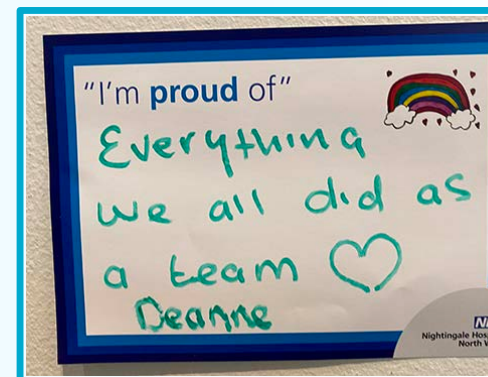 "I'm proud of"
Everything
we all did as
a team
Deanne
Nightingale
North